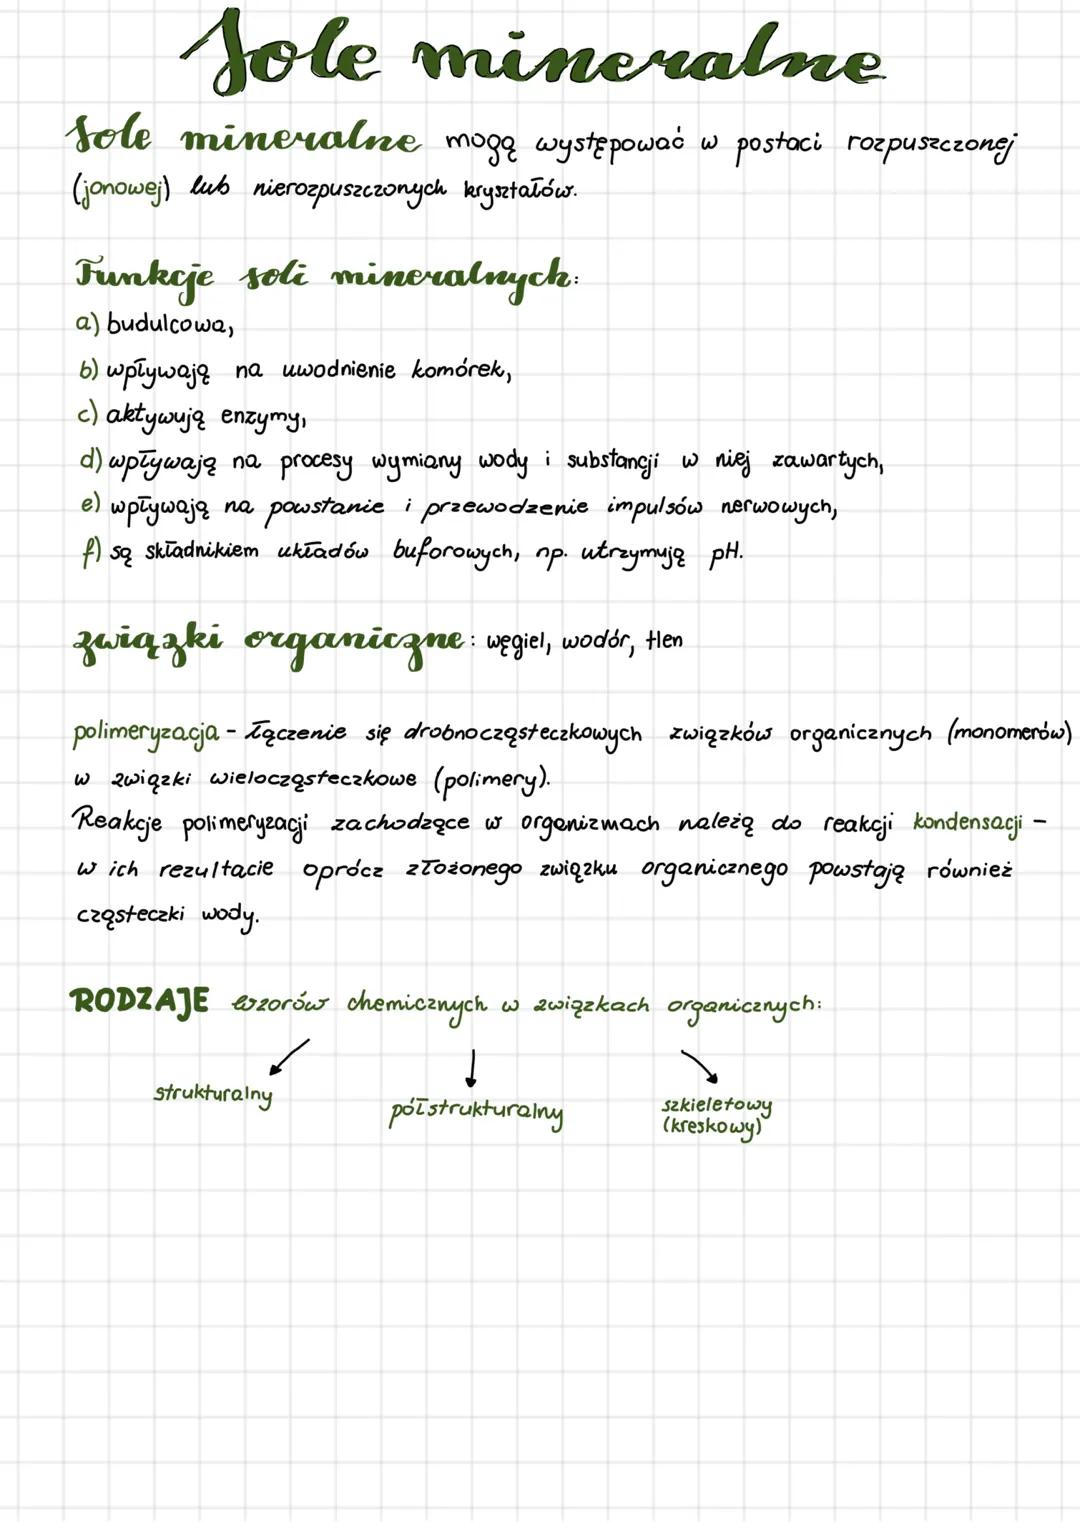 Sole mineralne
Sole mineralne mogą występować w postaci rozpuszczonej
(jonowej) lub nierozpuszczonych kryształów.
Funkcje soli mineralnych:
a) budulcowa,
b) wpływają na uwodnienie komórek,
c) aktywują enzymy,
d) wpływają na procesy wymiany wody i substancji w niej zawartych,
e) wpływają na powstanie i przewodzenie impulsów nerwowych,
f) są składnikiem układów buforowych, np. utrzymują pH.
związki organiczne: węgiel, wodór, tlen
polimeryzacja - łączenie się drobnocząsteczkowych związków organicznych (monomerów)
w związki wielocząsteczkowe (polimery).
Reakcje polimeryzacji zachodzące w organizmach należą do reakcji kondensacji -
w ich rezultacie oprócz złożonego związku organicznego powstają również
cząsteczki wody.
RODZAJE wzorów chemicznych w związkach organicznych:
strukturalny
półstrukturalny
szkieletowy
(kreskowy)